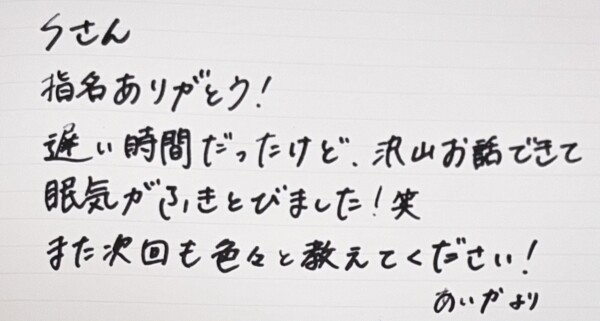 うさん
指名ありがとう!
遅い時間だったけど、沢山お話できて
眠気がふきとびました!笑
また次回も色々と教えてください!
あいかより